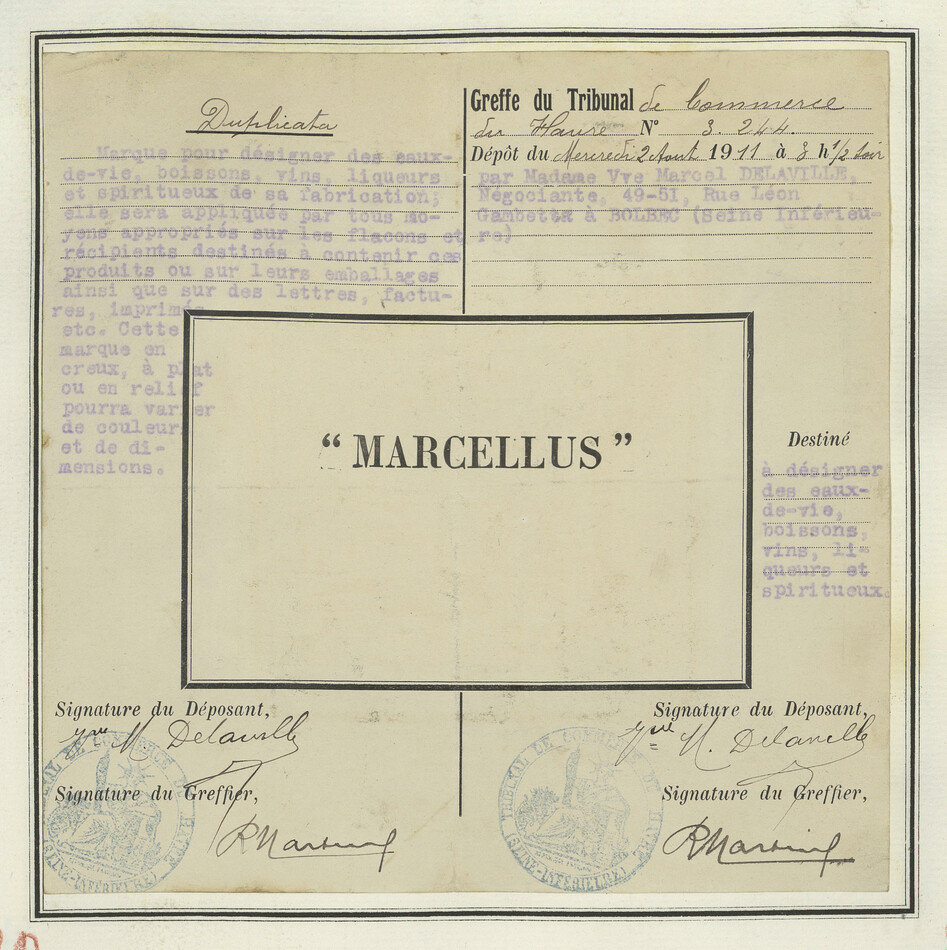 Duplicata
Marque pour désigner des eaux-
de-vie, boissons, vins, liqueurs
et spiritueux de sa fabrication;
elle sera appliquée par tous mo-
yens appropriés sur les flacons et
récipients destinés à contenir ces
produits ou sur leurs emballages
ainsi que sur des lettres, factu-
res, imprimés
etc. Cette
marque en
creux, à plat
ou en relief
pourra varier
de couleur
et de di-
mensions.
Greffe du Tribunal de Commerce
du Havre N° 3.244.
Dépôt du Mercredi 2 Aout 1911 à 3 h 1/2 soir
par Madame Vve Marcel DELAVILLE,
Négociante, 49-51, Rue Léon
Gambetta à BOLBEC (Seine Inférieu-
re)
“ MARCELLUS ”
Destiné
à désigner
des eaux-
de-vie,
boissons,
vins, li-
queurs et
spiritueux.
Signature du Déposant,
Vve M. Delaville
Signature du Greffier,
TRIBUNAL DE COMMERCE DU HAVRE
(SEINE-INFÉRIEURE)
Signature du Déposant,
Vve M. Delaville
Signature du Greffier,
TRIBUNAL DE COMMERCE DU HAVRE
(SEINE-INFÉRIEURE)